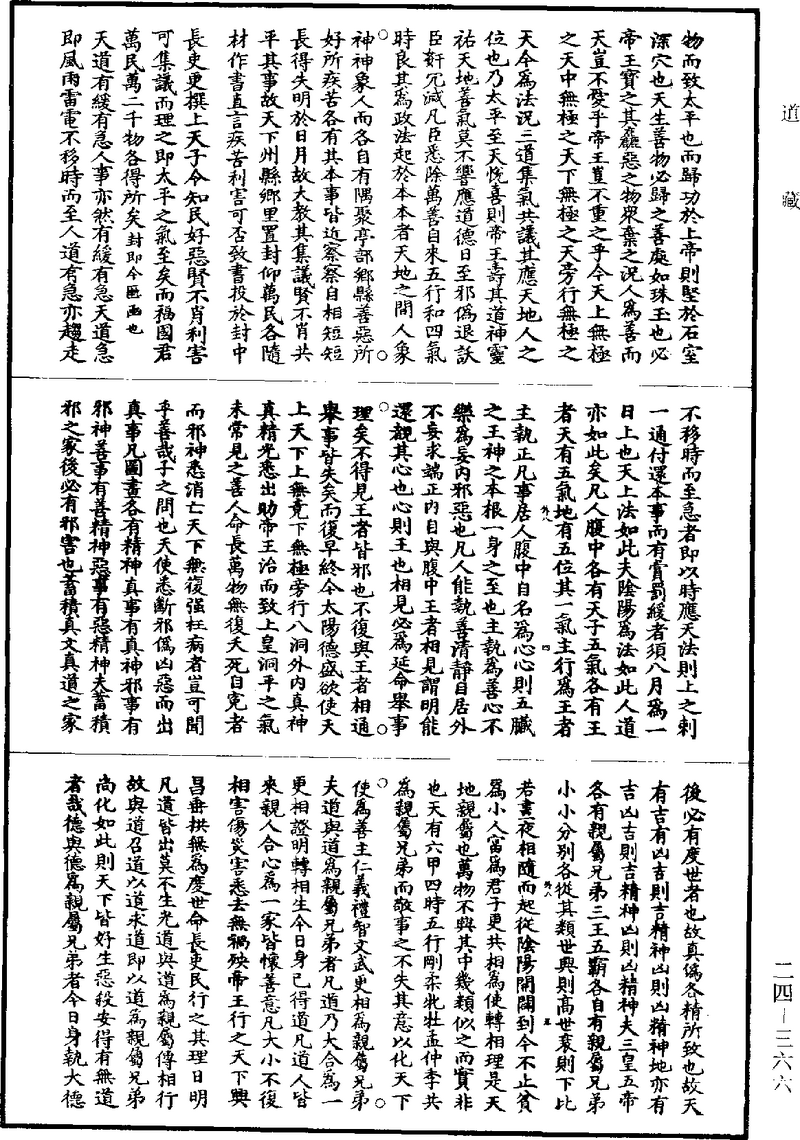 道藏
物而致太平也而歸功於上帝則堅於石室
深穴也天生善物必歸之善處如珠玉也必
帝王寶之其麤惡之物眾棄之況人為善而
天豈不愛乎帝王豈不重之乎今天上無極
之天中無極之天下無極之天旁行無極之
天今為法況三道集氣共議其應天地人之
位也乃太平至天悅喜則帝王壽其道神靈
祐天地善氣莫不響應道德日至邪偽退訞
臣奸冗滅凡臣悉除萬善自來五行和四氣
時良其為政法起於本本者天地之間人象
神神象人而各自有隅聚亭部鄉縣善惡所
好所疾苦各有其本事皆近察察自相短短
長得失明於日月故大教其集議賢不肖共
平其事故天下州縣鄉里置封仰萬民各隨
材作書直言疾苦利害可否致書投於封中
長吏更撰上天子令知民好惡賢不肖利害
可集議而理之即太平之氣至矣而福國君
萬民萬二千物各得所矣封即今匭函也
天道有緩有急人事亦然有緩有急天道急
即風雨雷電不移時而至人道有急亦趨走
不移時而至急者即以時應天法則上之刺
一通付還本事而有賞罰緩者須八月為一
日上也天上法如此夫陰陽為法如此人道
亦如此矣凡人腹中各有天子五氣各有王
者天有五氣地有五位其一氣主行為王者
主執正凡事居人腹中自名為心心則五臟
之王神之本根一身之至也主執為善心不
樂為妄內邪惡也凡人能執善清靜自居外
不妄求端正內自與腹中王者相見謂明能
還觀其心也心則王也相見必為延命舉事
理矣不得見王者皆邪也不復與王者相通
舉事皆失矣而復早終今太陽德盛欲使天
上天下上無竟下無極旁行八洞外內真神
真精光悉出助帝王治而致上皇洞平之氣
未常見之善人命長萬物無復夭死自冤者
而邪神悉消亡天下無復强枉病者豈可聞
乎善哉子之問也天使悉斷邪偽凶惡而出
真事凡圖畫各有精神真事有真神邪事有
邪神善事有善精神惡事有惡精神夫蓄積
邪之家後必有邪害也蓄積真文真道之家
後必有度世者也故真偽各精所致也故天
有吉有凶吉則吉精神凶則凶精神地亦有
吉凶吉則吉精神凶則凶精神夫三皇五帝
各有親屬兄弟三王五霸各自有親屬兄弟
小小分別各從其類世興則高世衰則下比
若晝夜相隨而起從陰陽開闢到今不止貧
為小人富為君子更共相為使轉相理是天
地親屬也萬物不興其中幾類似之而實非
也天有六甲四時五行剛柔牝牡孟仲季共
為親屬兄弟而敬事之不失其意以化天下
使為善主仁義禮智文武更相為親屬兄弟
夫道與道為親屬兄弟者凡道乃大合為一
更相證明轉相生今日身已得道凡道人皆
來親人合心為一家皆懷善意凡大小不復
相害傷災害悉去無禍殃帝王行之天下興
昌垂拱無為度世命長吏民行之其理日明
凡道皆出莫不生光道與道為親屬傳相行
故與道召道以道求道即以道為親屬兄弟
尚化如此則天下皆好生惡殺安得有無道
者哉德與德為親屬兄弟者今日身執大德
二四—三六六